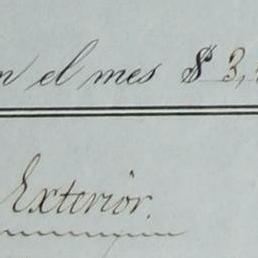 n el mes $ 3,
Exterior.